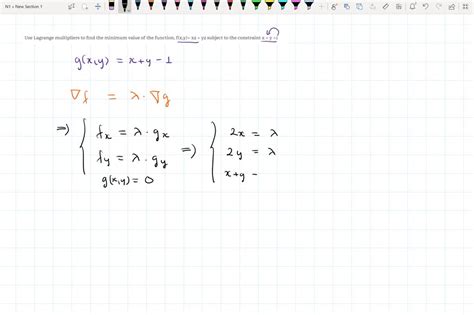 N1 • New Section 1
Use Lagrange multipliers to find the minimum value of the function, f(x,y)= x2 + y2 subject to the constraint x + y =1
g(x,y) = x+y - 1
∇f = λ · ∇g
⇒ { fx = λ · gx
fy = λ · gy
g(x,y) = 0
⇒ { 2x = λ
2y = λ
x+y -